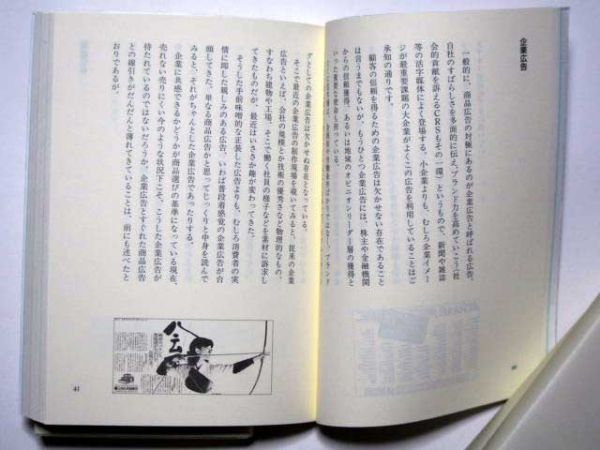 企業広告
一般的に、商品広告の対極にあるのが企業広告と呼ばれる広告。
自社のすばらしさを多面的に伝え、ブランド力を高めていこう(社
会的貢献を訴えるCRSもその一環)というもので、新聞や雑誌
等の活字媒体によく登場する。小企業よりも、むしろ企業イメー
ジが最重要課題の大企業がよくこの広告を利用していることはご
承知の通りです。
顧客の信頼を得るための企業広告は欠かせない存在であること
は言うまでもないが、もうひとつ企業広告には、株主や金融機関
からの信頼獲得、あるいは地域のオピニオンリーダー層の獲得と
いった重要な使命も担っている。
グとしての企業広告は欠かせぬ存在となっている。
そこで最近の企業広告の制作現場を覗いてみると、従来の企業
広告といえば、会社の規模とか技術の優秀さなど物理的なもの、
すなわち建物や工場、そこで働く社員の様子などを素材に訴求し
てきたものだが、最近はいささか趣が変わってきた。
そうした手前味噌的な正装した広告よりも、むしろ消費者の実
情に即した親しみのある広告、いわば普段着感覚の企業広告が台
頭してきた。単なる商品広告かと思ってじっくりと中身を読んで
みると、それがちゃんとした企業広告であったりする。
企業に共感できるかどうかが商品選びの基準になっている現在、
売れない売りにくい今のような状況下こそ、こうした企業広告が
待たれているのではないだろうか。企業広告とすぐれた商品広告
との線引きがだんだんと薄れてきていることは、前にも述べたと
おりであるが。
41